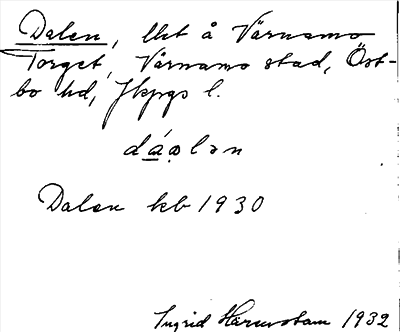 Dalen, lht å Värnamo
Torget, Värnamo stad, Öst-
bo hd, Jkpgs l.
dá̱ạlən
Dalen kb 1930
Ingrid 1932